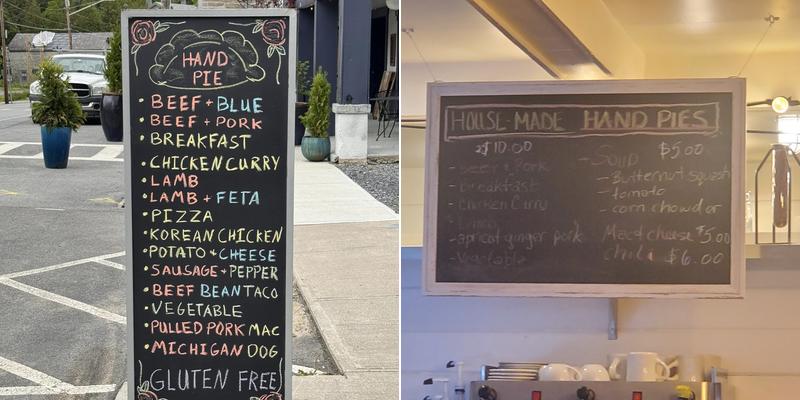 HAND
PIE
• BEEF + BLUE
• BEEF + PORK
• BREAKFAST
• CHICKEN CURRY
• LAMB
• LAMB + FETA
• PIZZA
• KOREAN CHICKEN
• POTATO + CHEESE
• SAUSAGE + PEPPER
• BEEF BEAN TACO
• VEGETABLE
• PULLED PORK MAC
• MICHIGAN DOG
GLUTEN FREE
HOUSE-MADE HAND PIES
$10.00
- Beef & Pork
- Breakfast
- Chicken Curry
- Lamb
- apricot ginger pork
- Vegetable
- Soup $5.00
- Butternut squash
- tomato
- corn chowder
Mac & cheese $5.00
Chili $6.00